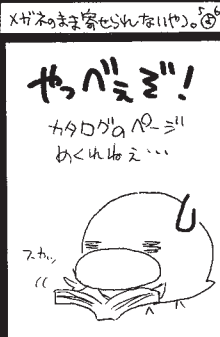 メガネのまま寄せられないやつ。5④6
やっべぇぞ!
カタログのページ
めくれねぇ…
スカッ